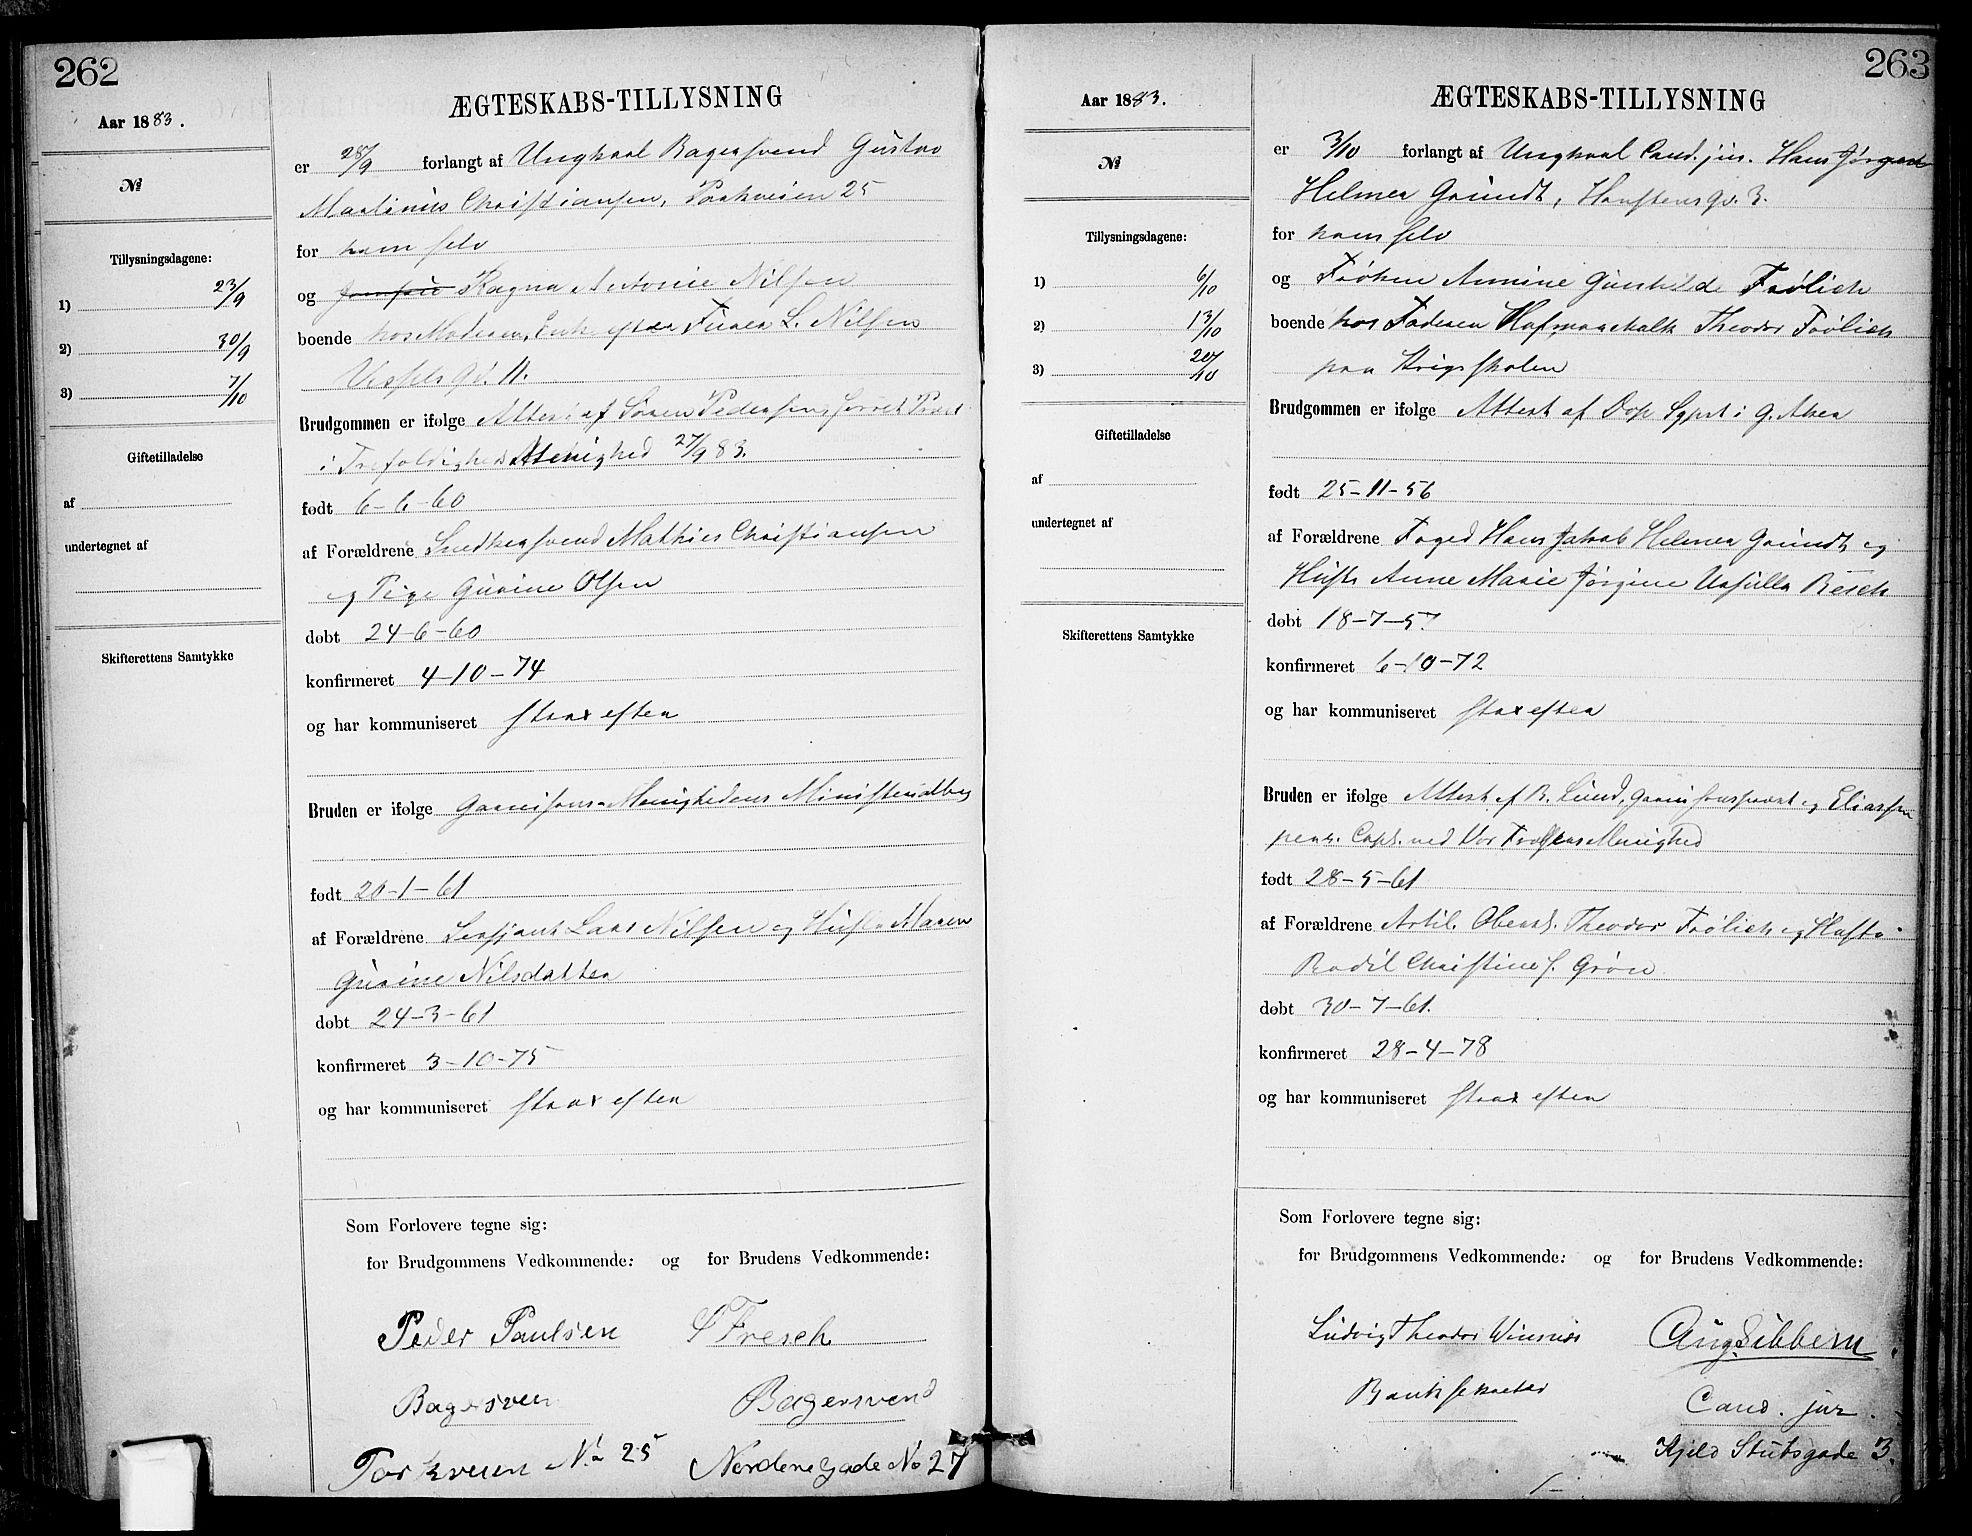 262
Aar 1883.
№
Tillysningsdagene:
1) 23/9
2) 30/9
3) 7/10
Giftetilladelse
af
undertegnet af
Skifterettens Samtykke
ÆGTESKABS-TILLYSNING
er 28/9 forlangt af Ungkarl Bagersvend Gustav
Martinius Christiansen, Parkveien 25
for ham selv
og Ragna Antonie Nilsen
boende hos Moderen, Enke efter Furer L. Nilsen
Vessels gd. 11.
Brudgommen er ifølge Attest af Søren Pedersen, forret Præst
i Trefoldigheds Menighed 27/9 83.
født 6-6-60
af Forældrene Snedkersvend Mathias Christiansen
og Pige Gurine Olsen
døbt 24-6-60
konfirmeret 4-10-74
og har kommuniseret strax efter
Bruden er ifølge Garnisons-Menighedens Ministerialbog
født 20-1-61
af Forældrene Sersjant Lars Nilsen og Hustr Maren
Gurine Nilsdatter
døbt 24-3-61
konfirmeret 3-10-75
og har kommuniseret strax efter
Som Forlovere tegne sig:
for Brudgommens Vedkommende: og for Brudens Vedkommende:
Peder Paulsen Fresch
Bagersven Bagersvend
Parkveien No 25 Nordenegade No 27
263
Aar 1883.
№
Tillysningsdagene:
1) 6/10
2) 13/10
3) 20/10
Giftetilladelse
af
undertegnet af
Skifterettens Samtykke
ÆGTESKABS-TILLYSNING
er 3/10 forlangt af Ungkarl Cand. jur. Hans Jørgen
Helmer Grundt, Hansteens gd. 3.
for ham selv
og Frøken Annine Gunhilde Frølich
boende hos Faderen Hofmarschalk Theodor Frølich
paa Krigsskolen
Brudgommen er ifølge Attest af Dop Sgprt i G. Aker
født 25-11-56
af Forældrene Foged Hans Jakob Helmer Grundt og
Hustr Anne Marie Jørgine Ursulla Besch
døbt 18-7-57
konfirmeret 6-10-72
og har kommuniseret strax efter
Bruden er ifølge Attest af B. Lund, Garnisonsprest og Eliassen
pers. Capl. ved Vor Frelsers Menighed
født 28-5-61
af Forældrene Artil. Oberst. Theodor Frølich og Hustr
Bodil Christine f. Grøn
døbt 30-7-61.
konfirmeret 28-4-78
og har kommuniseret strax efter
Som Forlovere tegne sig:
for Brudgommens Vedkommende: og for Brudens Vedkommende:
Ludvig Theodor Winsnes Aug Sibbern
Banksekretær Cand. jur.
Kjeld Stubsgade 3.